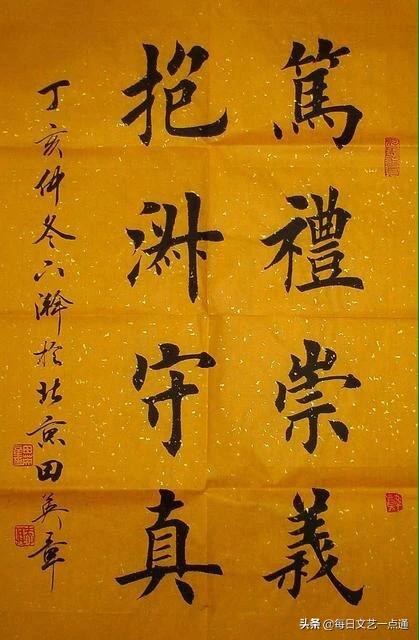 篤禮崇義
抱渊守真
丁亥仲冬下瀚於北京田英章
头条 @每日文艺一点通